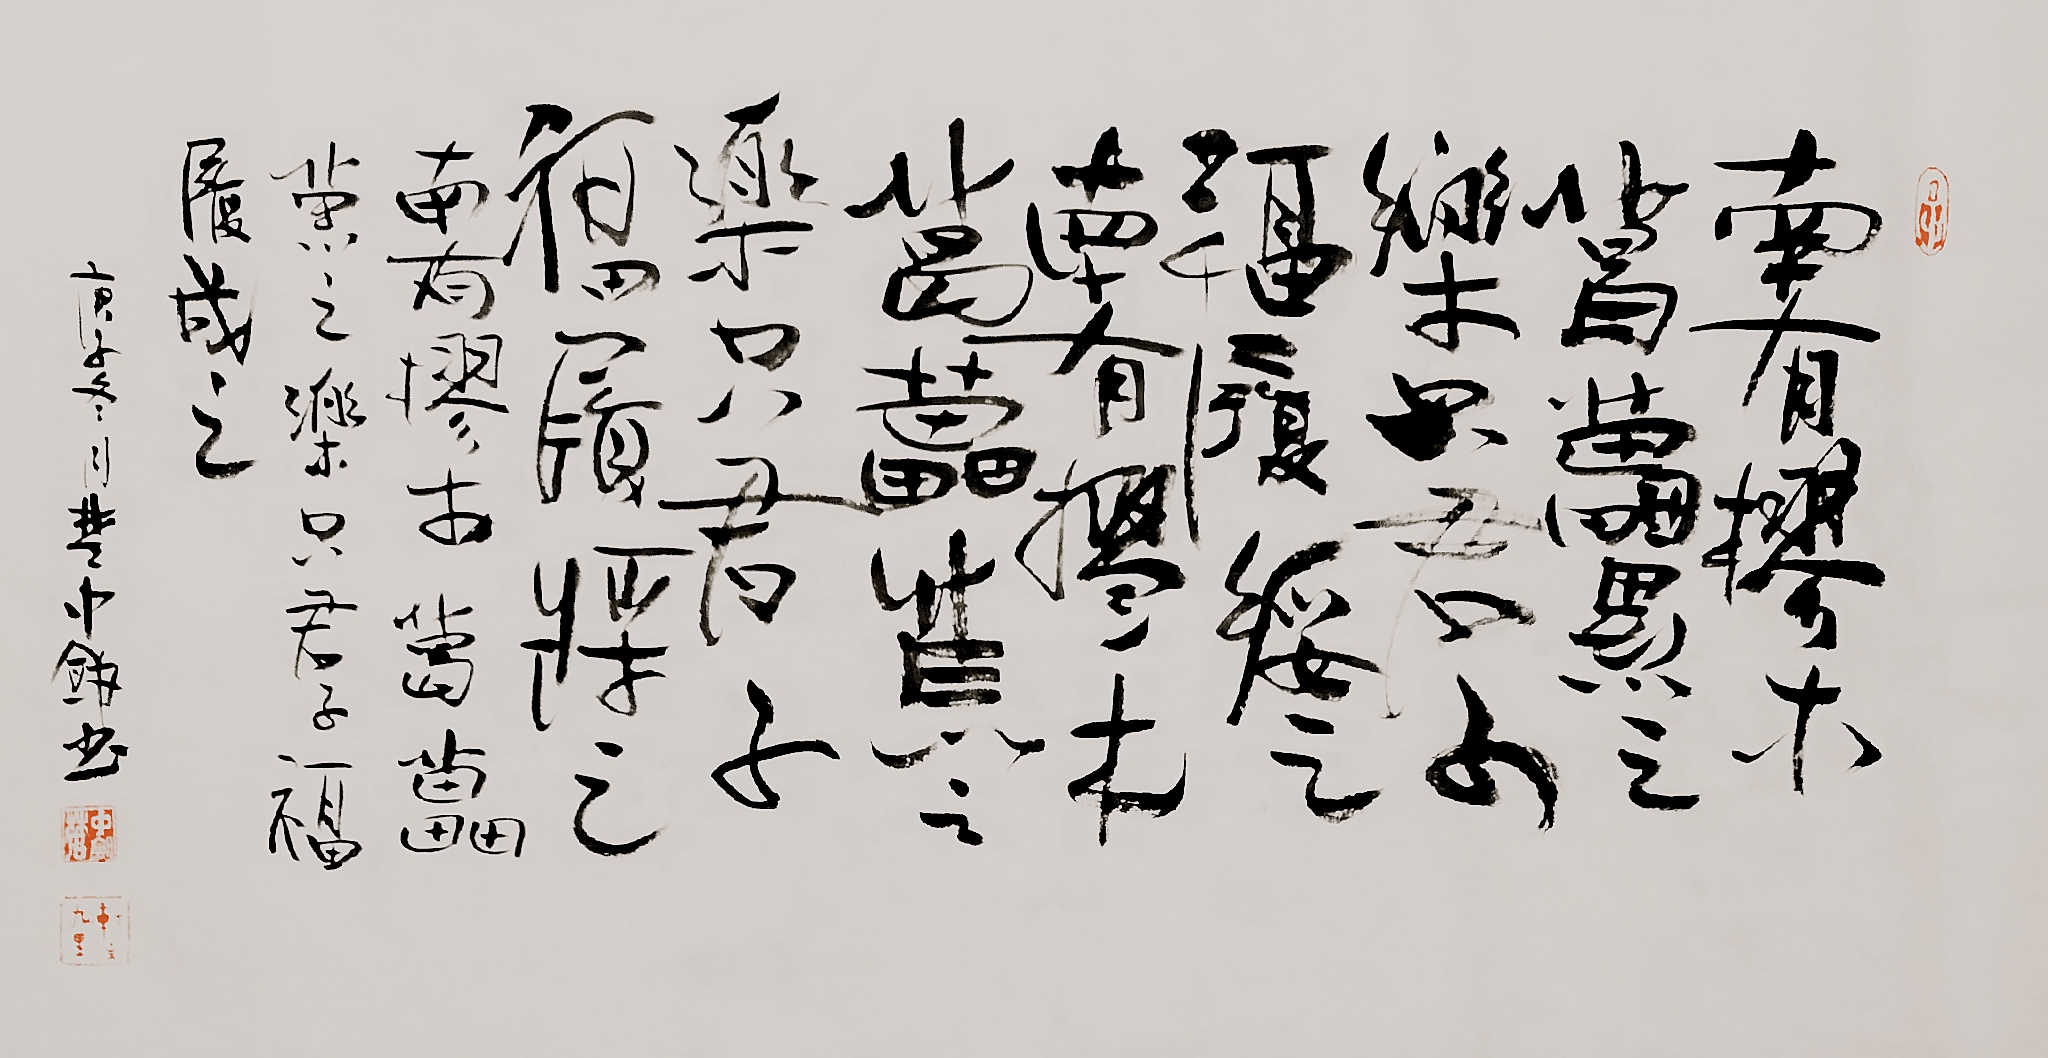 南有樛木
葛藟累之
樂只君子
福履綏之
南有樛木
葛藟荒之
樂只君子
福履將之
南有樛木葛藟
縈之樂只君子福
履成之
庚子冬月中书